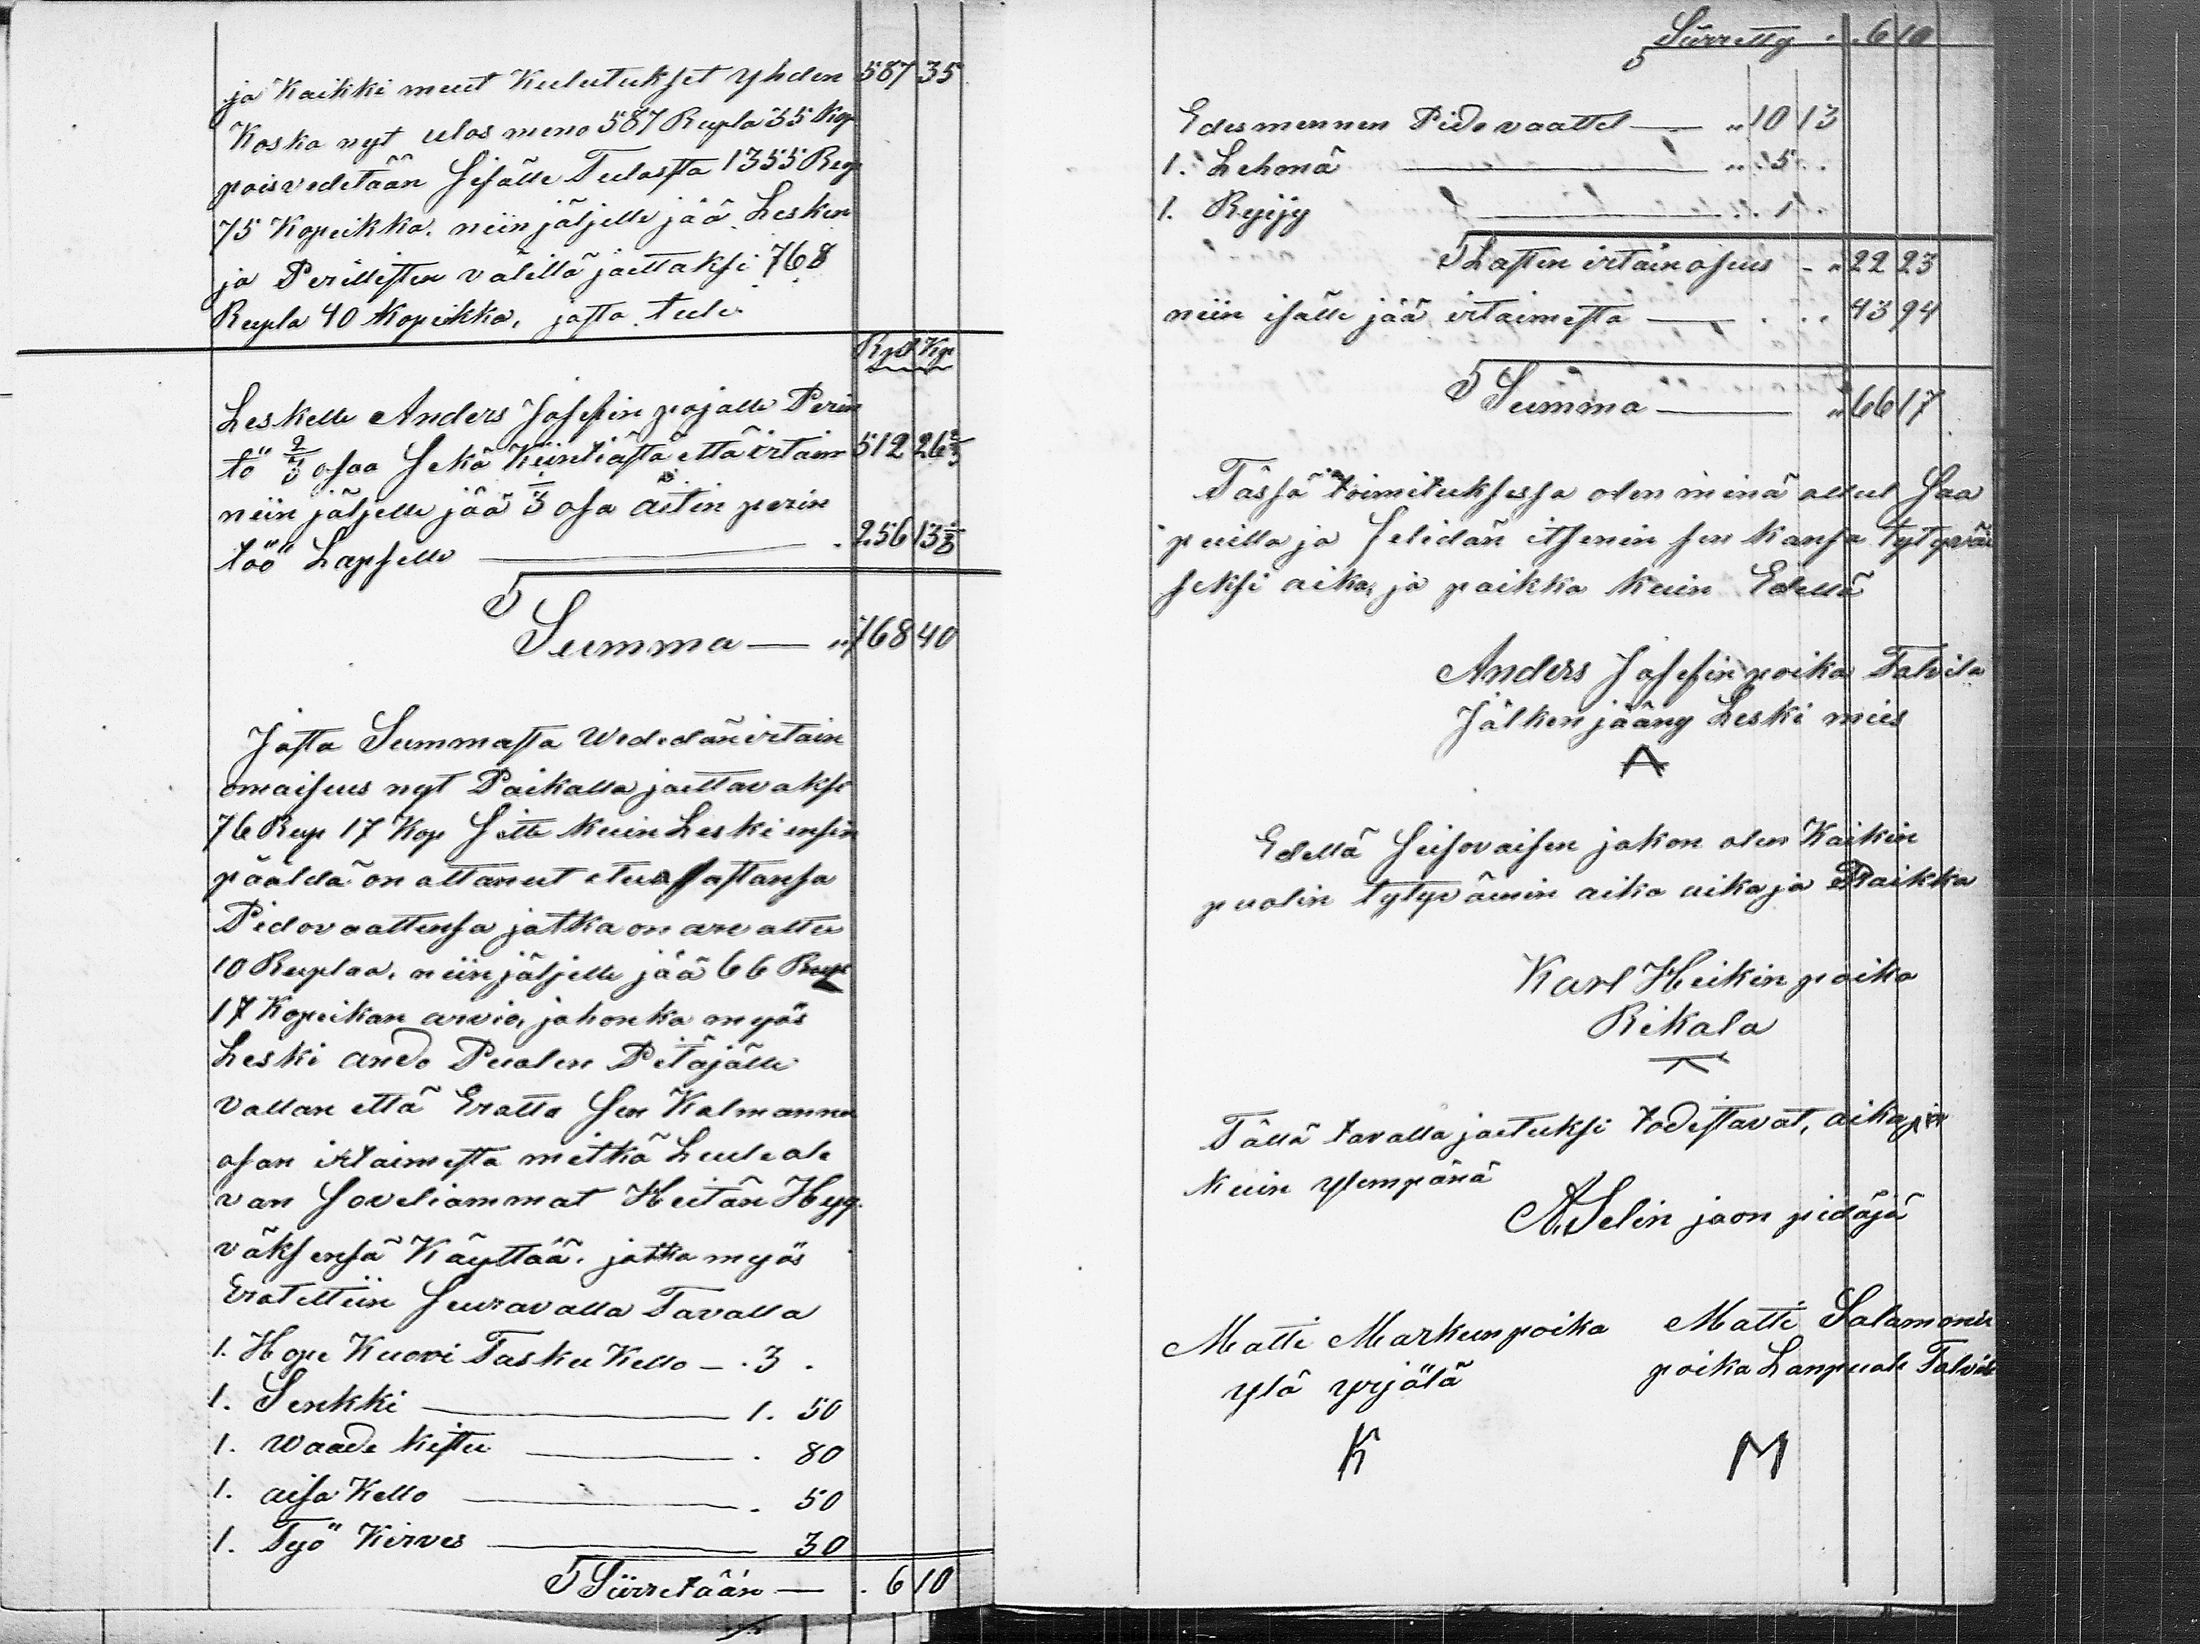 ja Kaikki muut Kulutukset yhden 587 35
Koska nyt ulos meno 587 Rupla 35 Kop
poisvedetään Sisälle Tulosta 1355 Rup
75 Kopeikka. niin jäljelle jää Lesken
ja Perillisten välillä jaettaksi 768
Rupla 40 Kopeikka, josta tule
Rpl Kp
Leskelle Anders Josefin pojalle Perin
tö 2/3 osaa Sekä Kiintiästä että irtaim 512 26 2/3
niin jäljelle jää 1/3 osa äitin perin
töö Lapselle 256 13 1/3
Summa — „ 768 40
Josta Summasta Wededän irtain
omaisuus nyt Paikalla jaettavaksi
76 Rup 17 Kop Sitte kuin Leski ensin
päältä on ottanut etuosastansa
Pidovaattensa jotka on arvattu
10 Ruplaa, niin jäljelle jää 66 Rup
17 Kopeikan arvio, johonka myös
Leski ando Puolen Pitäjälle
vallan että Erotta Sen Kolmannen
osan irtaimesta mitkä Luule ole
van Soveliammat Heitän Hyy
väksensä Käyttää. jotka myös
Eroteltiin Seuravalla Tavalla
1. Hope Kuori Tasku Kello — . 3 .
1. Senkki — 1. 50
1. Waade kistu — . 80
1. aisa Kello — . 50
1. Työ Kirves — 30
Siirretään — . 6 10
Siirretty . . 6 10
Edesmennen Pidovaattet — „ 10 13
1. Lehmä — „ 5 .
1. Ryijy — . 1 .
Lasten irtain osuus - „ 22 23
niin isälle jää irtaimesta — . . . 43 94
Summa — „ 66 17
Tässä toimituksessa olen minä ollut Saa
puilla ja Selidän itsenin sen kansa tytyväi
seksi aika, ja paikka kuin Edellä
Anders Josefin poika Talvila
Jälken jääny Leski mies
A
Edellä Seisovaisen jakon olen Kaikin
puolin tytyväinin aika aika ja Paikka
Karl Heikin poika
Rikala
Tällä tavalla jaetuksi todistavat, aika ja
kuin ylempänä
A. Selin jaon pidäjä
Matti Markunpoika
ylä yrjälä
K
Matti Salamonin
poika Lanpuole Talvila
M